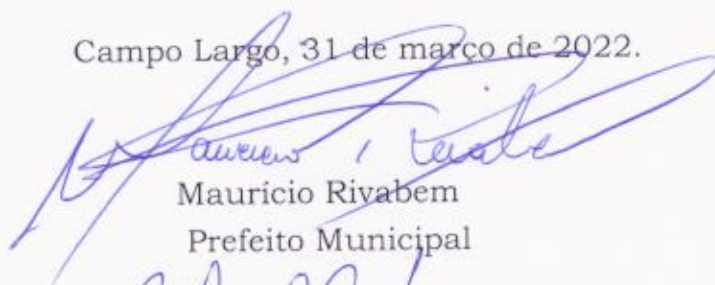 Campo Largo, 31 de março de 2022.
Maurício Rivabem
Prefeito Municipal